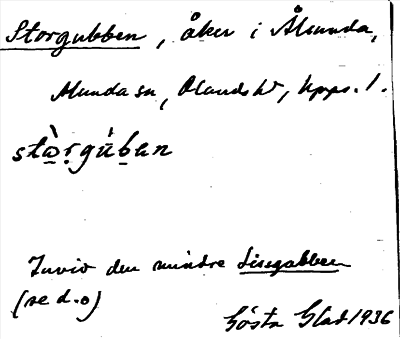 Storgubben, åker i Ålsunda,
Munda sn, Olands hd, Upps. l.
stɷ̀ṛgúban
Invid den mindre Lissgubben
(se d.o)
Gösta Glad 1936